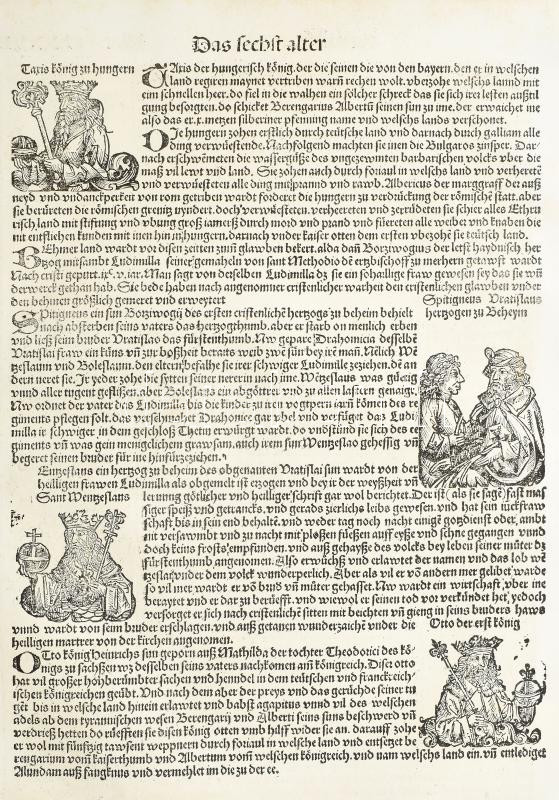 Das sechst alter
Taxis könig zu hungern
Taxis der hungerisch könig. der die seinen die von den bayern. den er in welschen
land regiren maynet vertriben warñ rechen wolt. vberzohe welschs lannd mit
eim schnellen heer. do fiel in die walhen ein sölcher schreck das sie sich irer letsten außtil
gung besorgten. do schicket Berengarius Albertũ seinen sun zu ime. der erwaichet ine
also das er .x. metzen silberiner pfenning name vnd welschs lands verschonet.
Die hungern zohen erstlich durch teütsche land vnd darnach durch galliam alle
ding verwüestende. Nachfolgend machten sie inen die Bulgaros zinsper. Dar-
nach erschwemeten die wassergüß des vngezemten barbarischen volcks vber die
maß vil lewt vnd land. Sie zohen auch durch foriaul in welschs land vnd verhereten
vnd verwüesteten alle ding mit prannd vnd rawb. Albericus der marggraff der auß
neyd vnd vndanckperkeit von rom getriben wardt forderet die hungern zu verdrückung der römischẽ statt. aber
sie berüreten die römischen grenitz nyndert. doch verwüesteten. verhereten vnd zerrüdeten sie schier alles Ethru
risch land mit stifftung vnd vbung groß iamerß durch mord vnd prand vnd füereten alle weiber vnd knaben die
mit entslichen kunden mit inen hin in hungern. darnach vnder kaiser otten dem ersten vbezohẽ sie teütsch land.
Behmer land wardt vor disen zeiten zum glawben bekert. alda dañ Borziwogius der letst haydnisch her
tzog mitsambt Ludimilla seiner gemaheln von sant Methodio dẽ ertzbischoff zu merhern getawft wardt
Nach cristi gepurt
iar. Man sagt von derselben Ludimilla dz sie ein so hailige fraw gewesen sey das sie wũ
derwerck gethan hab. Sie bede haben nach angenomner cristenlicher warheit den cristenlichen glawben vnder
den behmen größlich gemeret vnd erweytert
Spitigneus Vratislaus
hertzogen zu Beheym
Spitigneus ein sun Borziwogij des ersten cristenlichẽ hertzogs zu beheim behielt
nach absterben seins vaters das hertzogthumb. aber er starb on menlich erben
vnd ließ seim bruder Vratislao das fürstenthumb. Nw gepare Drahomicia desselbẽ
Vratislai fraw ein küns vñ zur boßheit beraits weib zwẽ sün bey ire mañ. Nẽlich Wẽ
tzeslaum vnd Boleslaum. den eltern befalhe sie irer schwiger Ludimille zeziehen. dẽ an
dern neret sie. Ir yeder zohe die sytten seiner nererin nach ime. Wẽtzeslaus was güetig
vnnd aller tugent geflissen. aber Boleslaus ein abgöttrer vnd zu allen lastern genaigt.
Nw ordnet der vater das Ludimilla biß die kinder zu iren vogtpern iarñ kömen des re
giments pflegen solt. das verschmahet Drahomic gar vbel vnd verfüget das Ludi
milla ir schwiger in dem geschloß Thetin erwürgt wardt. do vndstünd sie sich des re
giments vñ was gein menigclichem grawsam. auch irem sun Wentzeslao gehessig vñ
begeret seinen bruder für ine hinfürzeziehen.
Wentzeslaus ein hertzog zu beheim des obgenanten Vratislai sun wardt von der
heilligen frawen Ludimilla als obgemelt ist erzogen vnd bey ir der weyßheit vñ
Sant Wentzeslaus
lernung götlicher vnd heilliger schrifft gar wol berichtet. Der ist (als sie sagẽ) fast mas
siger speiß vnd getrancks. vnd gerads zierlichs leibs gewesen. vnd hat sein iückfraw
schaft biß in sein end behaltẽ. vnd weder tag noch nacht einigẽ gotzdienst oder. ambt
nit versawmbt vnd zu nacht mit ploßen füeßen auff eyße vnd schne gegangen vnnd
doch keins frosts empfunden. vnd auß gehayße des volcks bey leben seiner müter dz
fürstenthumb angenomen. Also erwüchß vnd erlawtet der namen vnd das lob wẽ
tzeslai vnder dem volck wunderperlich. Aber als vil er võ andern mer gelibet warde
so vil mer wardt er võ brud̃ vñ müter gehasset. Nw wardt ein wirtschaft. vber ine
beraytet vnd er dar zu berüefft. vnd wiewol er seinen tod vor verkündet het. yedoch
versorget er sich nach cristenlichẽ sitten mit beichten vñ gieng in seins bruders haws
vnnd wardt von seim bruder erschlagen. vnd auß getanen wunderzaichẽ vnder die
heilligen martrer von der kirchen angenomen.
Otto der erst könig
Otto könig heinrichs sun geporn auß Mathilda der tochter Theodorici des kö-
nigs zu sachßen wz desselben seins vaters nachkomen am̃ königreich. Diser otto
hat vil großer hohberümbter sachen vnd henndel in dem teütschen vnd franckreich-
ischen königreichen geübt. Vnd nach dem aber der preys vnd das gerüchde seiner tu
gẽt biß in welsche land hinein erlawtet vnd babst agapitus vnnd vil des welschen
adels ab dem tyrannischen wesen Berengarij vnd Alberti seins suns beschwerd vñ
verdrieß hetten do rüefften sie disen könig otten vmb hilff wider sie an. darauff zohe
er wol mit fünfftzig tawsent weppnern durch foriaul in welsche land vnd entsetzet be
rengarium vom̃ kaiserthumb vnd Albertum vom̃ welschen königreich. vnd nam welschs land ein. entledigt
Alundam auß fangknus vnd vermehlet im die zu der ee.